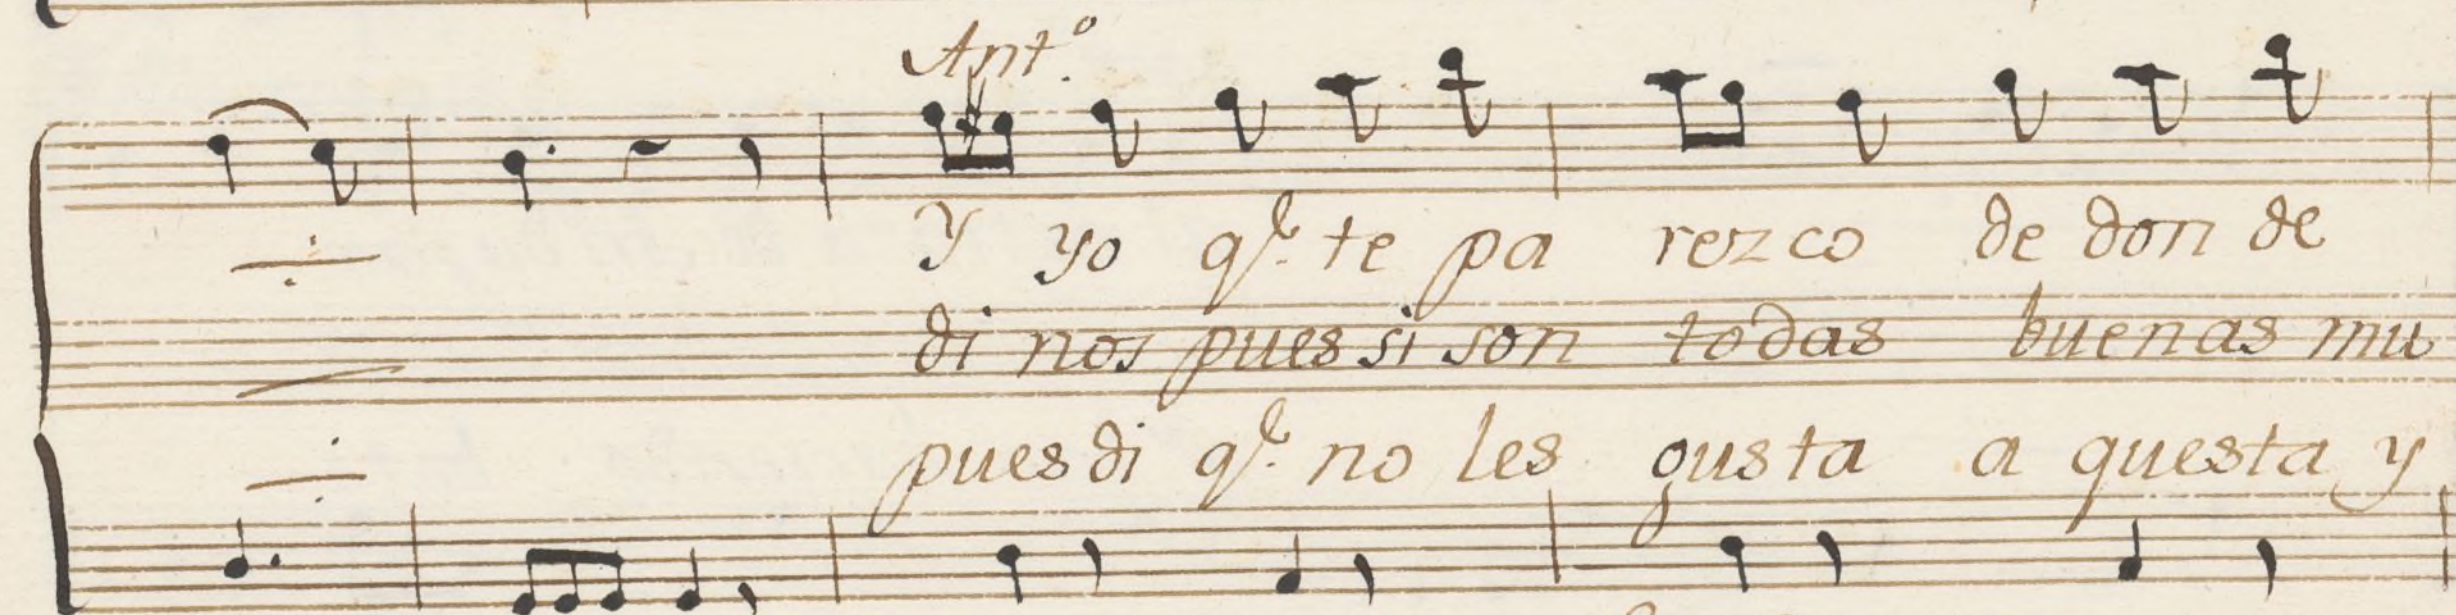 Ant.º
Y yo q.e te pa rezco de don de
di nos pues si son todas buenas mu
pues di q.e no les gusta a questa y